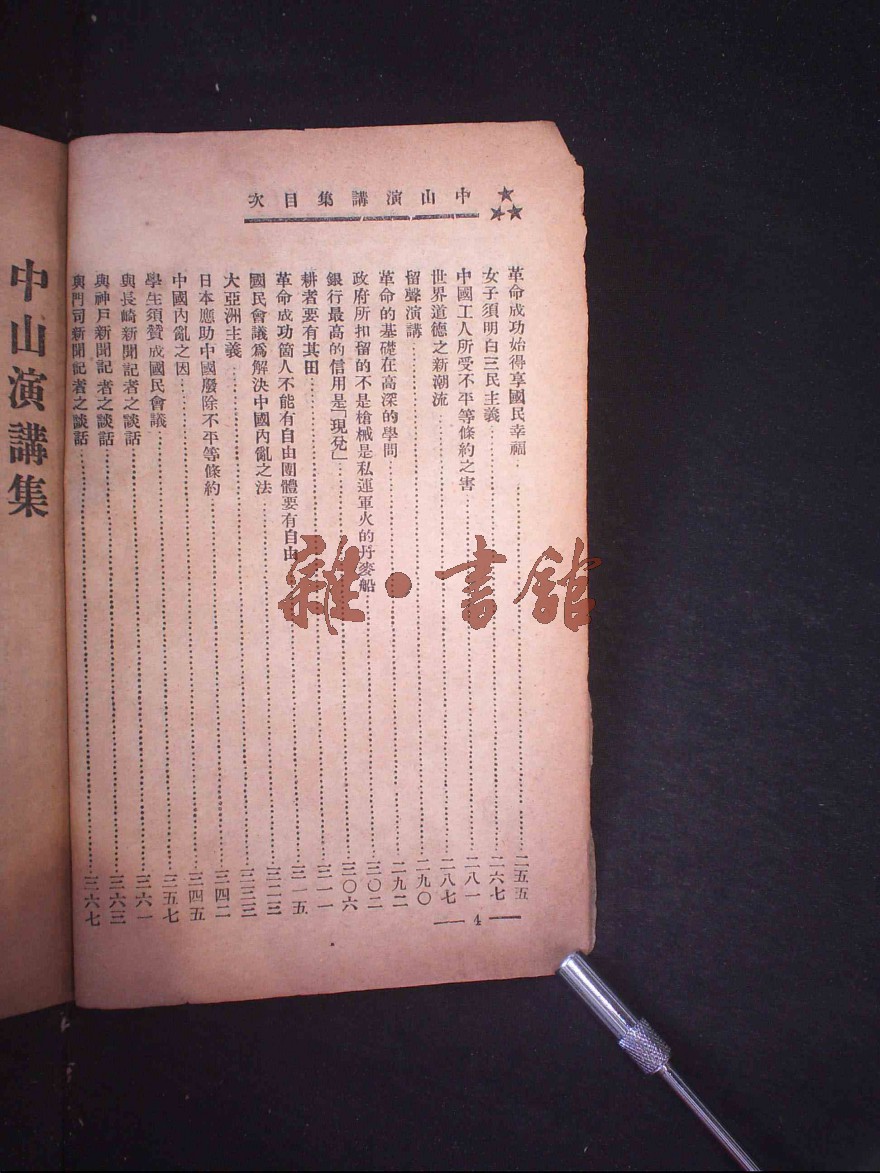 中山演講集目次
革命成功始得享國民幸福……二五五
女子須明白三民主義……二六七
中國工人所受不平等條約之害……二八一
世界道德之新潮流……二八七
留聲演講……二九〇
革命的基礎在高深的學問……二九二
政府所扣留的不是槍械是私運軍火的丹麥船……三〇二
銀行最高的信用是「現兌」……三〇六
耕者要有其田……三一一
革命成功箇人不能有自由團體要有自由……三一五
國民會議爲解決中國內亂之法……三二三
大亞洲主義……三三三
日本應助中國廢除不平等條約……三四二
中國內亂之因……三四五
學生須贊成國民會議……三五七
與長崎新聞記者之談話……三六一
與神戸新聞記者之談話……三六三
與門司新聞記者之談話……三六七
— 4 —
中山演講集
雜·書館